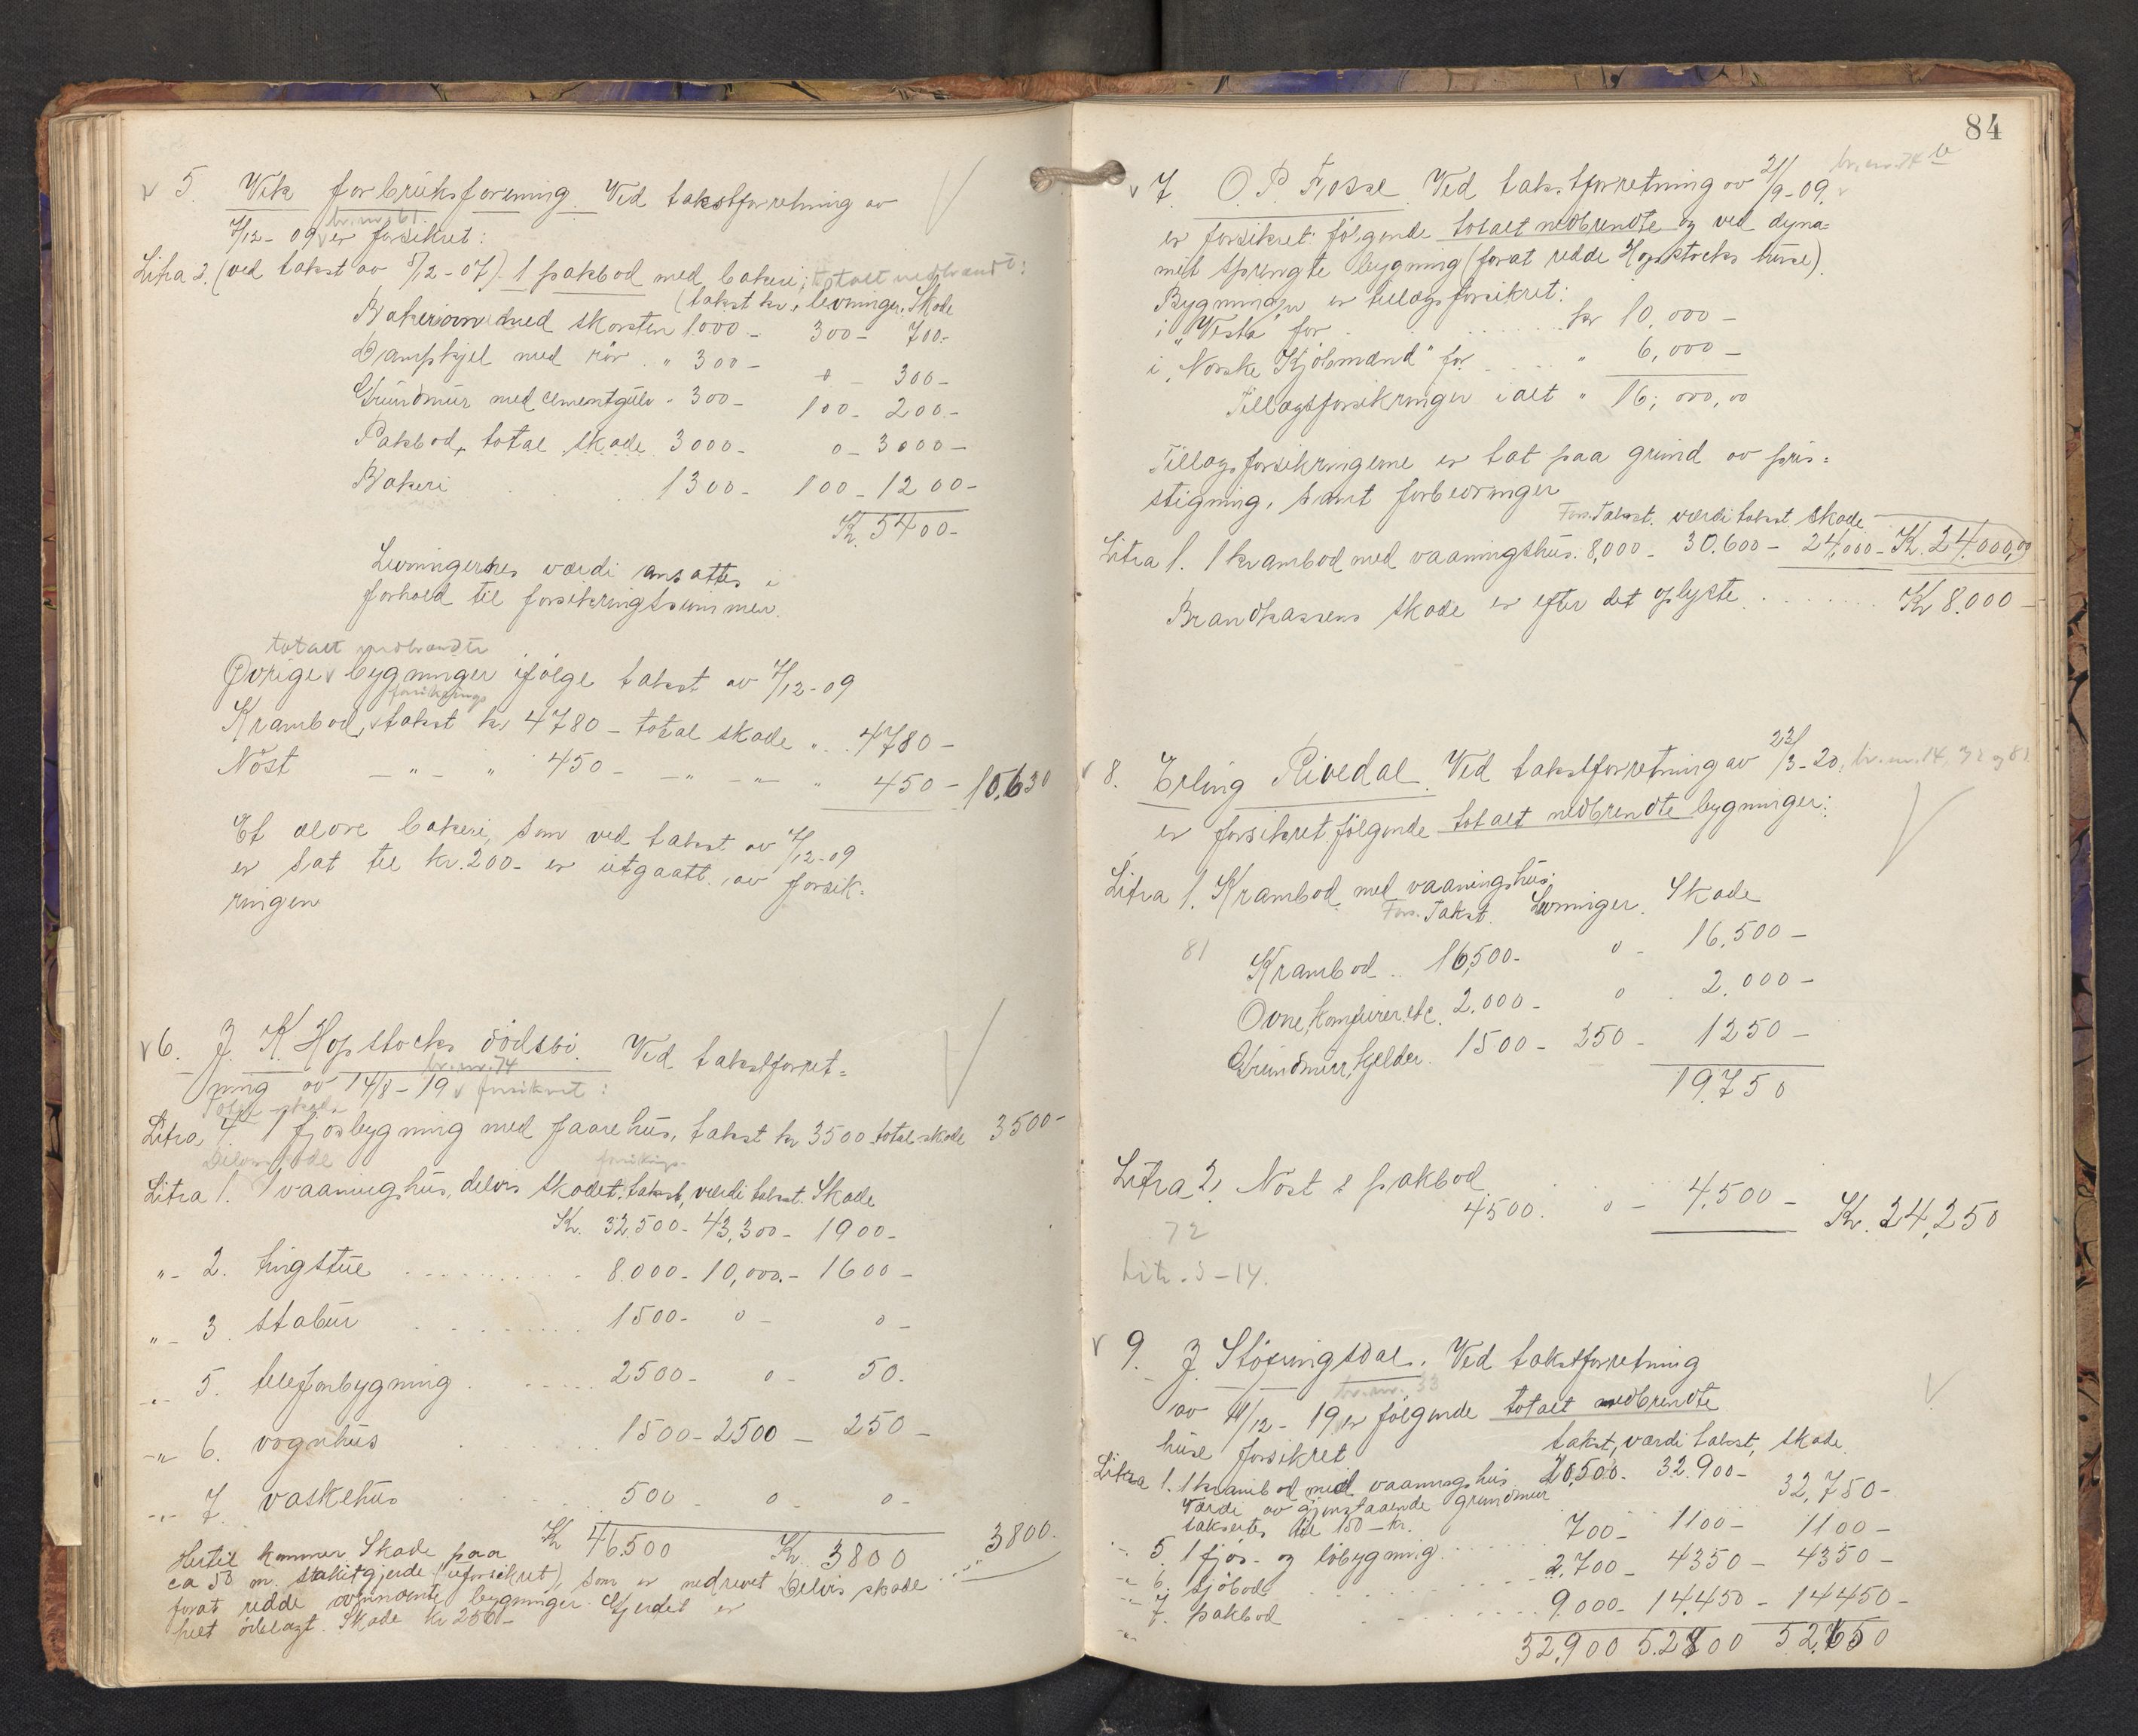 5. Vik forbruksforening. Ved takstforretning av
7/12-09 er forsikret:
br.nr. 61.
Litra 2. (ved takst av 5/12-07) 1 pakbod med bakeri, totalt nedbrændt:
(takst kr, levninger. Skade
Bakeriovn med skorsten 1000 - 300 - 700 -
Dampkjel med rör " 300 - 0 - 300 -
Grundmur med cementgulv " 300 - 100 - 200 -
Pakbod, total skade 3000 - 0 - 3000 -
Bakeri 1300 - 100 - 1200 -
Kr. 5400 -
Levningernes værdi ansattes i
forhold til forsikringssummen.
totalt nedbrændte
Övrige bygninger ifölge takst av 7/12-09
forsikrings
Krambod, takst kr 4780 - total skade " 4780 -
Nöst - " - " 450 - - " - - " - " 450 - 10,630
Et ældre bakeri, som ved takst av 7/12-09
er sat til kr. 200 - er utgaatt av forsik-
ringen
6. J. K. Hopstocks dödsbo. Ved takstforret-
br.nr. 74
ning av 14/8 - 19 forsikret:
Total skade
Litra 4. 1 fjösbygning med faarehus, takst kr 3500 total skade 3500 -
Delvis skade
forsikrings-
Litra 1. 1 vaaningshus, delvis skadet: takst, værdi takst. Skade
Kr. 32,500 - 43,300 - 1900 -
" - 2. tingstue 8.000 - 10,000. - 1600 -
" - 3. stabur 1500 - 0 - 0 -
" - 5. telefonbygning 2500 - 0 - 50.
- " 6. vognhus 1500 - 2500 - 250 -
- " - 7. vaskehus 500 - 0 - 0 -
Kr 46.500 Kr. 3800 3800.
Hertil kommer Skade paa
ca 50 m. stakitgjerde (uforsikret), som er nedrevet Delvis skade
forat redde ovennævnte bygninger. Gjerdet er
helt ödelagt. Skade kr 250 -
84
7. O. P. Fosse. Ved takstforretning av 21/9-09.
br.nr. 74
er forsikret fölgende totalt nedbrendte og ved dyna-
mit sprengte bygning (forat redde Hopstocks huse).
Bygningen er tillægsforsikret:
i "Vesta" for kr 10.000 -
i "Norske Kjöbmænd" for " 6,000 -
Tillægsforsikringer i alt " 16,000,00
Tillægsforsikringerne er tat paa grund av pris-
stigning, samt forbedringer
Fors. Takst. værdi takst, Skade
Litra 1. 1 krambod med vaaningshus. 8,000 - 30.600 - 24,000 - Kr. 24.000,00
Brandkassens skade er efter det oplyste Kr 8.000 -
8. Erling Rivedal. Ved takstforretning av 23/3-20. br.nr. 14, 72 og 81
er forsikret fölgende totalt nedbrendte bygninger:
Litra 1. Krambod med vaaningshus:
Fors. Takst. Levninger. Skade
81
Krambod 16,500 - 0 - 16.500 -
Ovne, komfurer etc. 2,000 - 0 2.000 -
Grundmur, kjelder. 1500 - 250 - 1250 -
19,750
Litra 2. Nöst & pakbod
4500. 0 - 4,500 - Kr. 24,250
72
Litr. 3 - 14.
9. J. Stöfringsdal. Ved takstforretning
br.nr. 33
av 11/12 - 19 er fölgende totalt nedbrendte
huse forsikret takst, værdi takst, skade
Litra 1. 1 krambod med vaaningshus 20,500 - 32.900 - 32,750 -
Værdi av gjenstaaende grundmur
takseres til 150 - kr.
" - 5. 1 fjös- og löbygning 700 - 1100 - 1100 -
- " 6. sjöbod 2,700 - 4350 - 4350 -
- " 7. pakbod 9.000 - 14,450 - 14450 -
32,900 52800 52,650